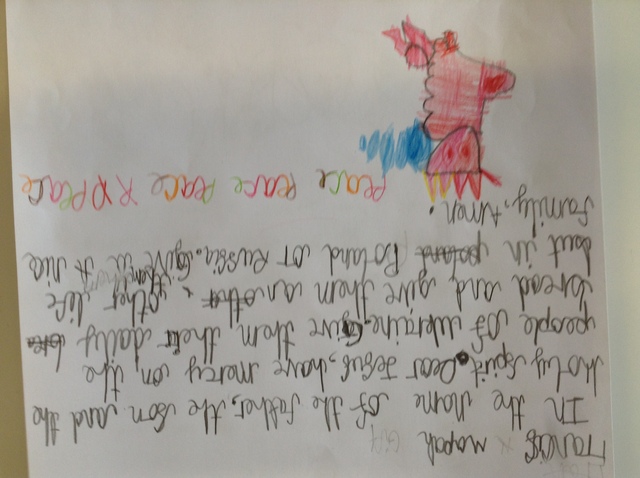 Frances x mapah
In the name of the father, the son and the
Holy Spirit. Dear Jesus, have mercy on the
people of Ukraine. Give them their daily
bread and give them another, other life
but in Poland or Russia. Give it a nice
family, Amen.
Peace Peace Peace Peace Peace X D Peace